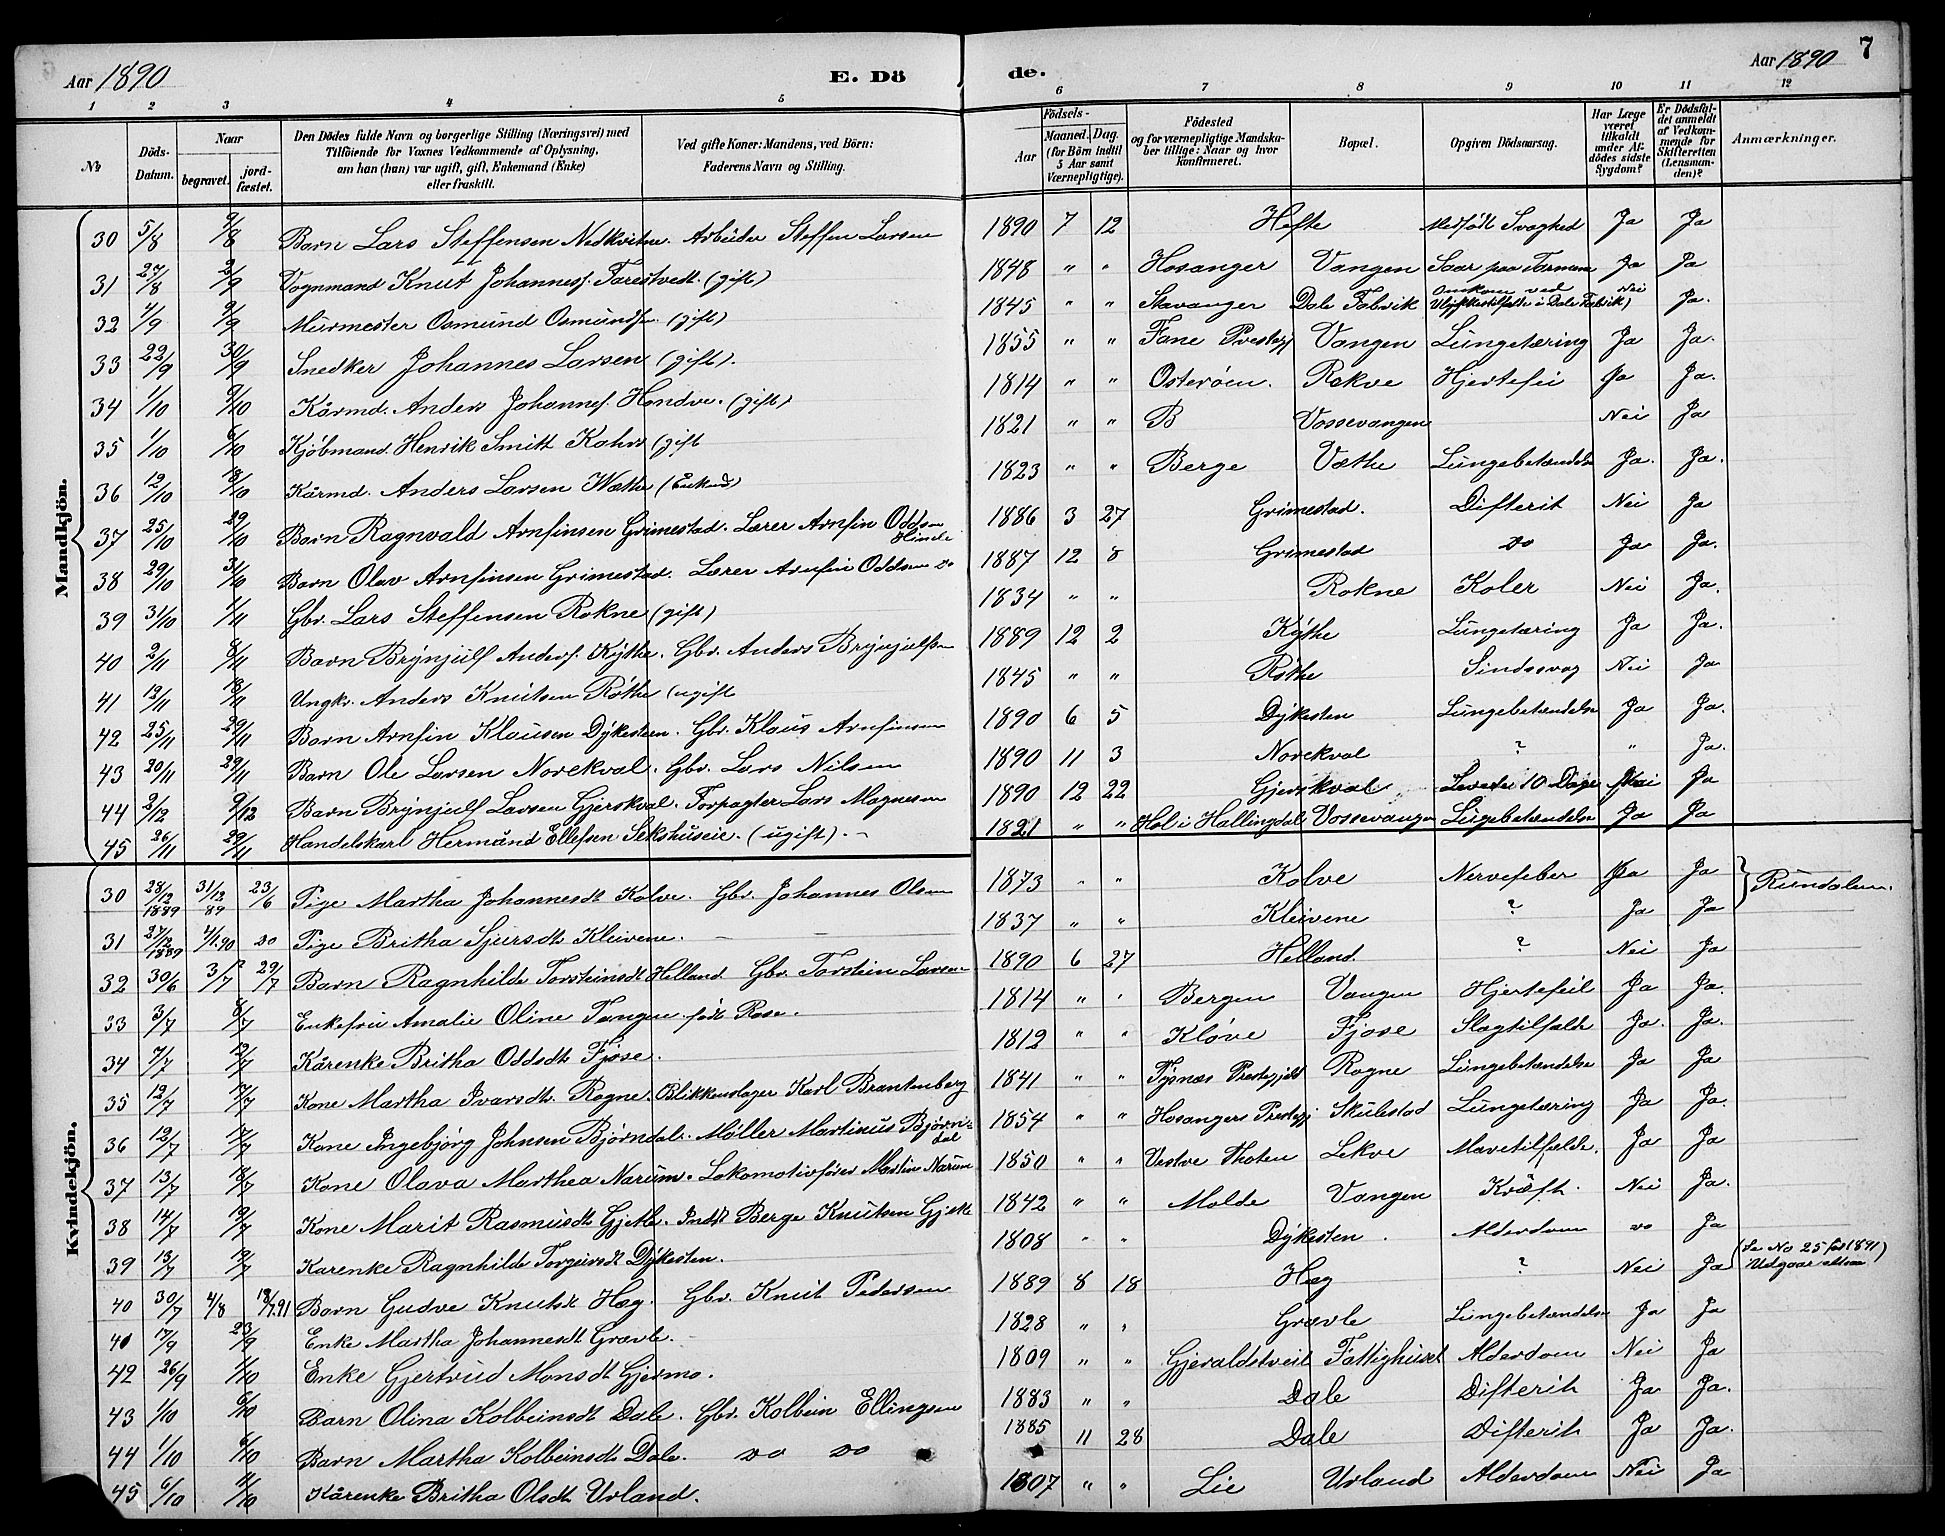 Aar 1890 E. Dö de. Aar 1890 7
1 2 3 4 5 6 7 8 9 10 11 12
№ Döds-Datum. Naar begravet. jord-fæstet. Den Dödes fulde Navn og borgerlige Stilling (Næringsvei) med Tilföiende for Voxnes Vedkommende af Oplysning, om han (hun) var ugift, gift, Enkemand (Enke) eller fraskilt. Ved gifte Koner: Mandens, ved Börn: Faderens Navn og Stilling. Aar Födsels- Maaned. Dag. (for Börn indtil 5 Aar samt Værnepligtige). Födested og for værnepligtige Mandska-ber tillige: Naar og hvor konfirmeret. Bopæl. Opgiven Dödsaarsag. Har Læge været tilkaldt under Af-dödes sidste Sygdom? Er Dödsfal-det anmeldt af Vedkom-mende for Skifteretten (Lensman-den)? Anmærkninger.
Mandkjön.
30 5/8 9/8 Barn Lars Steffensen Nedkvitne. Arbeider Steffen Larsen 1890 7 12 Hefte Medfødt Svaghed Ja Ja
31 27/8 2/9 Vognmand Knut Johannesf. Farestvedt. (gift) 1848 " " Hosanger Vangen Saar paa Tarmene Ja Ja
32 4/9 9/9 Murmester Osmund Osmundsen (gift) 1845 " " Stavanger Dale Fabrik Omkom ved Ulykkestilfælde i Dale Fabrik) Nei Ja.
33 22/9 30/9 Snedker Johannes Larsen (gift). 1855 " " Fane Prestegj Vangen Lungetæring Ja Ja.
34 1/10 9/10 Kårmd. Anders Johannesf. Hondve. (gift) 1814 " " Osterøen. Rokve Hjertefei Ja Ja.
35 1/10 6/10 Kjøbmand Henrik Smitt Kahrs (gift 1821 " " B Vossevangen Nei Ja
36 12/10 18/10 Kårmd. Anders Larsen Wæthe (Enkmd) 1823 " " Berge Væthe Lungebetændelse Ja. Ja.
37 25/10 29/10 Barn Ragnvald Arnfinsen Grimestad. Lærer Arnfin Oddsen Himle 1886 3 27 Grimestad. Difterit Nei Ja
38 29/10 31/10 Barn Olav Arnfinsen Grimestad. Lærer Arnfin Oddsen do 1887 12 8 Grimestad do Ja Ja.
39 31/10 1/11 Gbr. Lars Steffensen Rokne (gift) 1834 " " Rokne Koler Nei Ja.
40 2/11 8/11 Barn Brynjulf Andersf. Kythe. Gbr. Anders Brynjulfsen 1889 12 2 Kythe Lungetæring Ja Ja.
41 12/11 18/11 Ungkr. Anders Knutsen Røthe (ugift 1845 " " Røthe Sindssvag Nei Ja
42 25/11 29/11 Barn Arnfin Klausen Dykesteen. Gbr. Klaus Arnfinsen 1890 6 5 Dykesten Lungebetændelse Ja Ja.
43 20/11 29/11 Barn Ole Larsen Norekval. Gbr. Lars Nilsen 1890 11 3 Norekval ? " Ja.
44 2/12 9/12 Barn Brynjulf Larsen Gjerskval. Forpagter Lars Magnesen 1890 12 22 Gjerskval Levede 10 Dage Nei Ja
45 26/11 29/11 Handelskarl Hermånd Ellefsen Sekshuseie. (ugift). 1821 " " Hol i Hallingdal Vossevangen Lungebetændelse Ja Ja
Kvindekjön.
30 28/12 1889 31/12 89 23/6 Pige Martha Johannesdt Kolve. Gbr. Johannes Olsen 1873 " " Kolve Nervefeber Ja Ja } Rundalen.
31 27/12 1889 4/1.90 do Pige Britha Sjursdt Kleivene. 1837 " " Kleivene ? Ja Ja
32 30/6 3/7 29/7 Barn Ragnhilde Torsteinsdt Helland Gbr. Torstein Larsen 1890 6 27 Helland ? Nei Ja
33 3/7 8/7 Enkefru Amalie Oline Tangen født Rose. 1814 " " Bergen Vangen Hjertefeil Ja Ja.
34 7/7 12/7 Kårenke Britha Oddsdt Fjøse. 1812 " " Kløve Fjøse Slagtilfælde Ja. Ja.
35 12/7 17/7 Kone Martha Ivarsdt. Rogne. Blikkenslager Karl Brantenberg 1841 " " Tysnæs Prestegjeld Rogne Lungebetændelse Ja Ja
36 12/7 17/7 Kone Ingebjørg Johnsen Bjørndal. Møller Martinus Bjørn-dal 1854 " " Hosangers Prestegj Skulestad Lungetæring Ja Ja.
37 13/7 18/7 Kone Olava Marthea Narum. Lokomotivfører Martin Narum 1850 " " Vestre Thoten Lekve Mavetilfælde. Ja Ja
38 14/7 19/7 Kone Marit Rasmusdt Gjetle. Indst Berge Knutsen Gjetle 1842 " " Molde Vangen Kræft. Nei Ja.
39 13/7 19/7 Karenke Ragnhilde Torgeirsdt Dykesten. 1808 " " Dykesten. Alderdom do Ja
40 30/7 4/8 18/7.91 Barn Gudve Knutsdt Hæg. Gbr. Knut Pedersen 1889 8 18 Hæg ? Nei Ja (Se No 25 for 1891) Udgaar attsaa
41 17/9 23/9 Enke Martha Johannesdt Grævle. 1828 " " Grævle Lungebetændelse Ja Ja
42 26/9 1/10 Enke Gjertrud Monsdt Gjermo. 1809 " " Gjeraldstveit Fattighuset Alderdom Nei Ja
43 1/10 6/10 Barn Olina Kolbeinsdt Dale. Gbr. Kolbein Ellingsen 1883 " " Dale Difterit Ja Ja.
44 1/10 6/10 Barn Martha Kolbeinsdt Dale. do do 1885 11 28 Dale Difterit Ja Ja.
45 6/10 11/10 Kårenke Britha Olsdt Urland. 1807 " " Lie Urland Alderdom Nei Ja